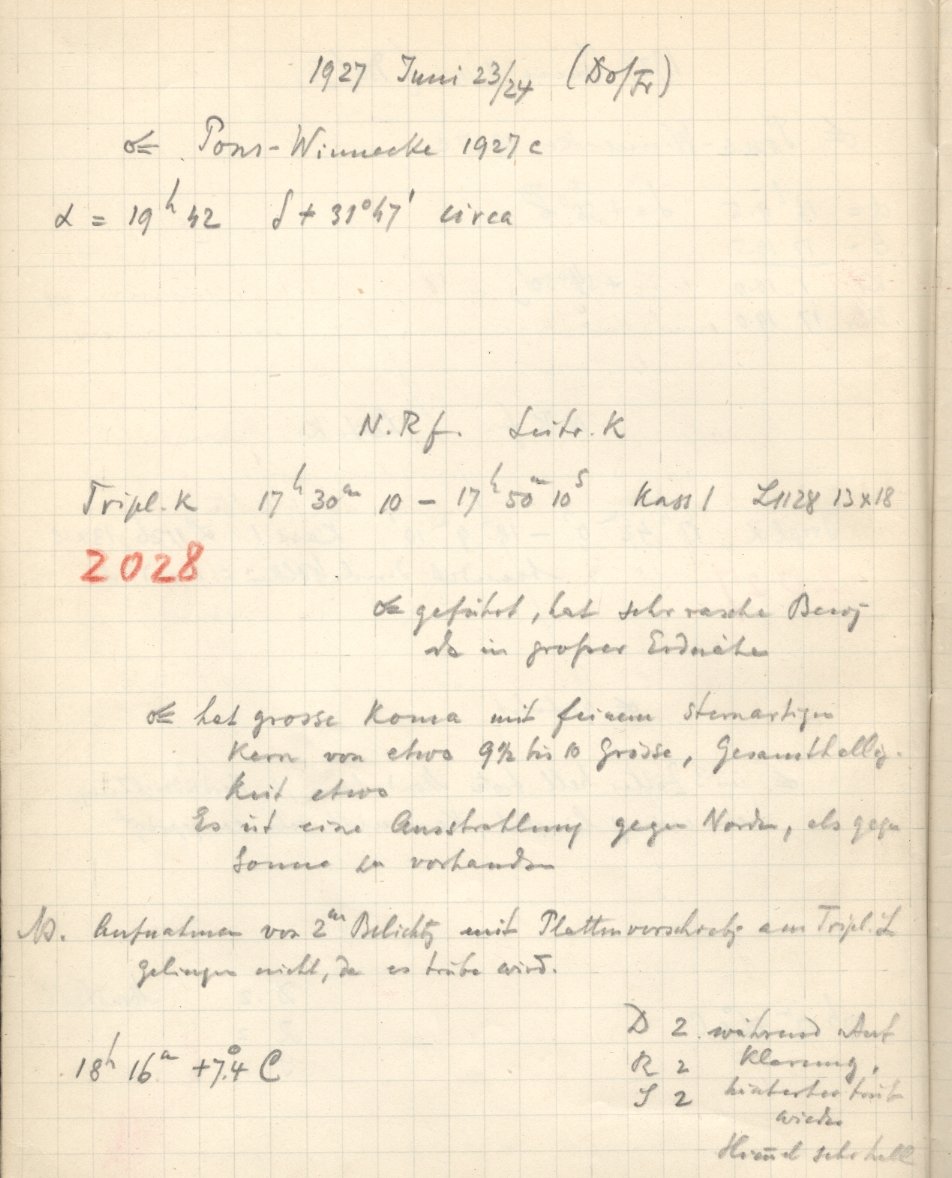 1927 Juni 23/24 (Do/Fr)
☄ Pons-Winnecke 1927 c
α = 19h 42 δ + 31° 47' circa
N.Rf. Leitr. K
Tripl. K 17h 30m 10 – 17h 50m 10s Kass 1 L1128 13x18
2028
☄ geführt, hat sehr rasche Bewg
da in großer Erdnähe
☄ hat grosse Koma mit feinem sternartigen
Kern von etwa 9½ bis 10 Grösse, Gesamthellig-
keit etwa
Es ist eine Ausstrahlung gegen Norden, als gegen
Sonne zu vorhanden
NB. Aufnahmen von 2m Belichtg mit Plattenverschiebg am Tripl. L
gelingen nicht, da es trübe wird.
18h 16m +7.4° C
D 2 während Auf
R 2 Klarung,
S 2 hinterher trüb
wieder
Himmel sehr hell